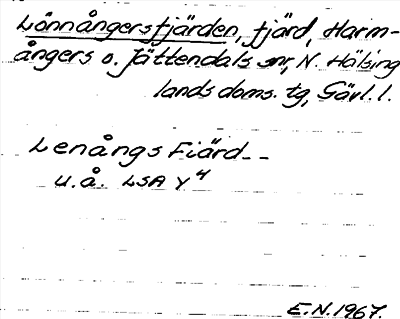 Lönnångersfjärden, fjärd, Harm-
ångers o. Jättendals snr, N. Hälsing
lands doms. tg, Gävl. l.
Lenångs Fiärd --
u.å. LSA Y 4
E.N. 1967.